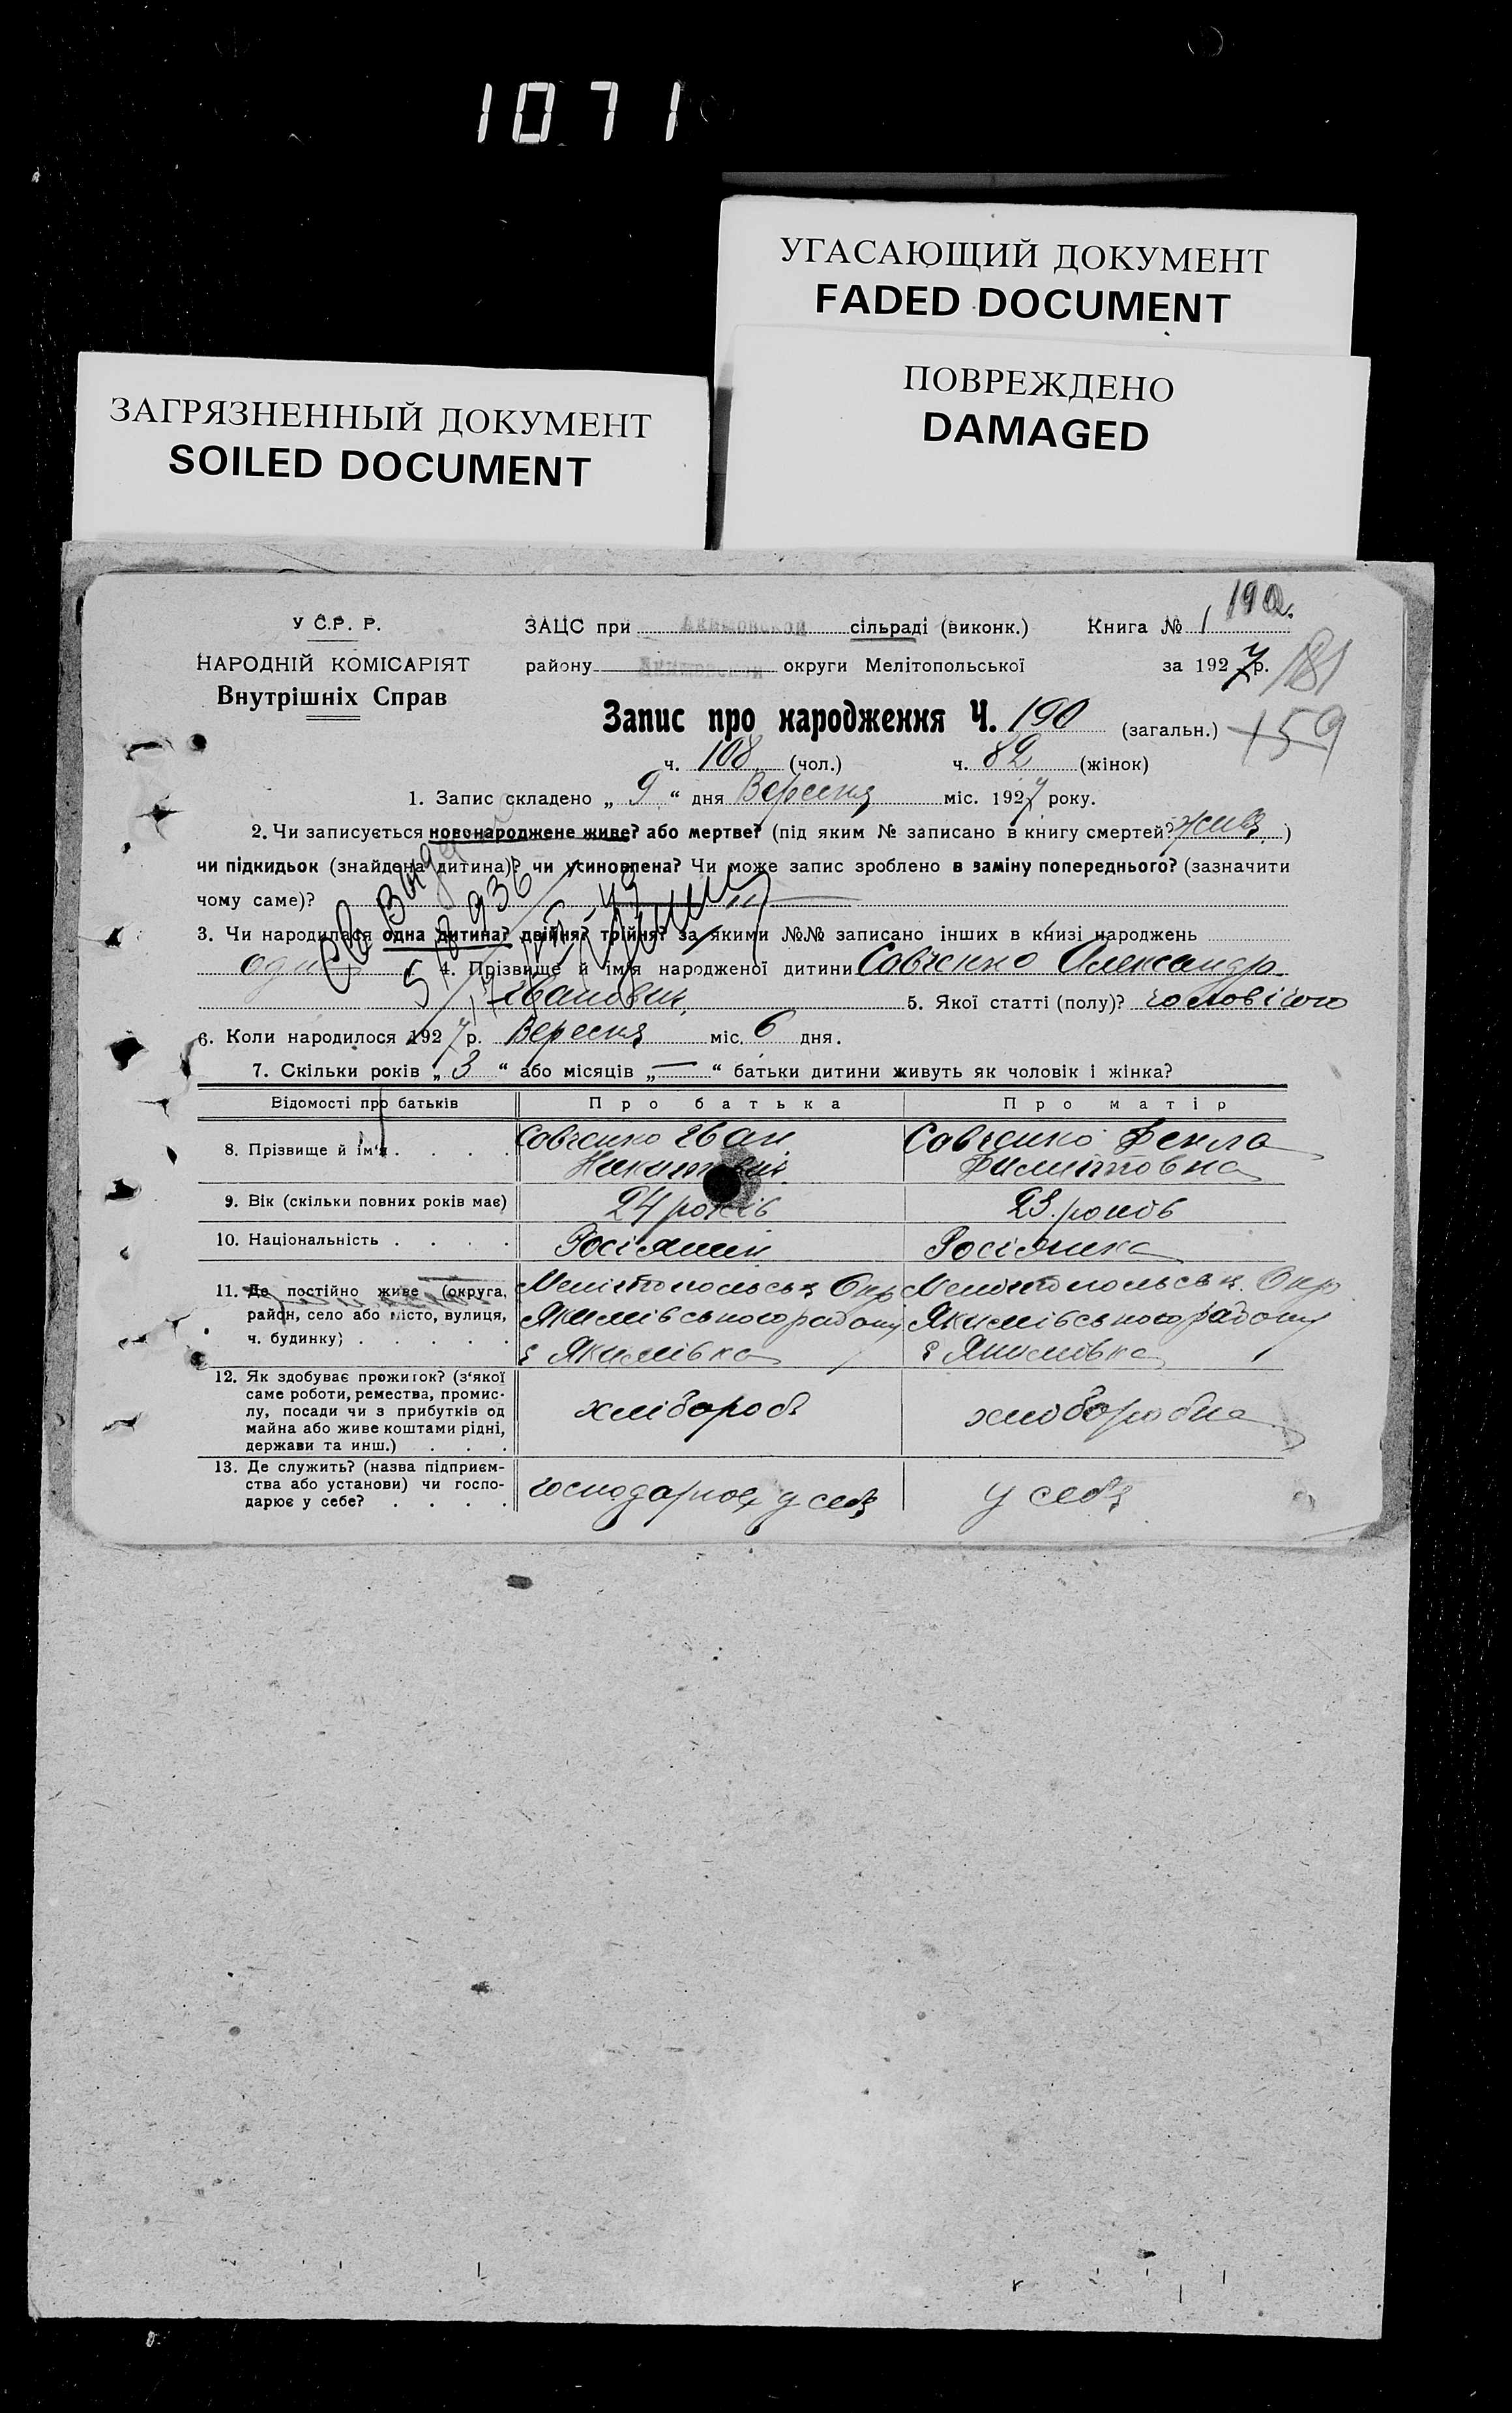 1071
УГАСАЮЩИЙ ДОКУМЕНТ
FADED DOCUMENT
ПОВРЕЖДЕНО
DAMAGED
ЗАГРЯЗНЕННЫЙ ДОКУМЕНТ
SOILED DOCUMENT
190.
У С.Р. Р.
НАРОДНІЙ КОМІСАРІЯТ
Внутрішніх Справ
ЗАЦС при Акимовской сільраді (виконк.) Книга № 1
району Акимовской округи Мелітопольської за 1927 р.
181
159
Запис про народження Ч. 190 (загальн.)
ч. 108 (чол.) ч. 82 (жінок)
1. Запис складено „ 9 “ дня Вересня міс. 1927 року.
2. Чи записується новонароджене живе? або мертве? (під яким № записано в книгу смертей? живе)
чи підкидьок (знайдена дитина)? чи усиновлена? Чи може запис зроблено в заміну попереднього? (зазначити
чому саме)?
3. Чи народилася одна дитина? двійня? трійня? за якими №№ записано інших в книзі народжень
4. Прізвище й ім'я народженої дитини Совченко Олександр
Іванович 5. Якої статті (полу)? чоловічого
6. Коли народилося 1927 р. Вересня міс. 6 дня.
7. Скільки років „ 3 “ або місяців „ — “ батьки дитини живуть як чоловік і жінка?
Відомості про батьків Про батька Про матір
8. Прізвище й ім'я . . . . Совченко Іван Совченко Фекла
Филиптовна
9. Вік (скільки повних років має) 24 років 23 років
10. Національність . . . . Росіянин Росіянка
11. Де постійно живе (округа, Мелітопольськ Окр Мелітопольськ Окр
район, село або місто, вулиця, Якимівського району Якимівського району
ч. будинку) . . . . . с Якимівка с Якимівка
12. Як здобуває прожиток? (з'якої
саме роботи, ремества, промис-
лу, посади чи з прибутків од хлібороб хліборобка
майна або живе коштами рідні,
держави та инш.) . . .
13. Де служить? (назва підприєм-
ства або установи) чи госпо- господарює у себе у себе
дарює у себе? . . . .